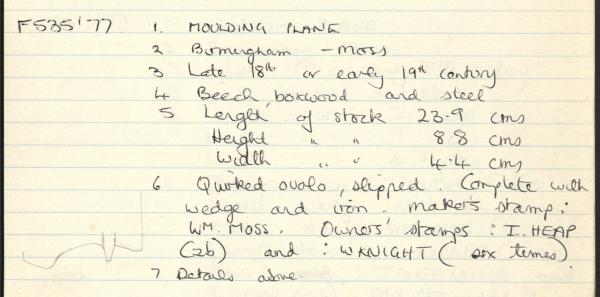 F535'77 1. MOULDING PLANE
2 Birmingham - Moss
3 Late 18th or early 19th century
4 Beech, boxwood and steel
5 Length of stock 23.9 cms
Height " " 8.8 cms
Width " " 4.4 cms
6 Quirked ovolo, slipped. Complete with
wedge and iron. maker's stamp:
WM. MOSS. Owners' stamps: I. HEAP
(2b) and : W KNIGHT (six times)
7 Details above.